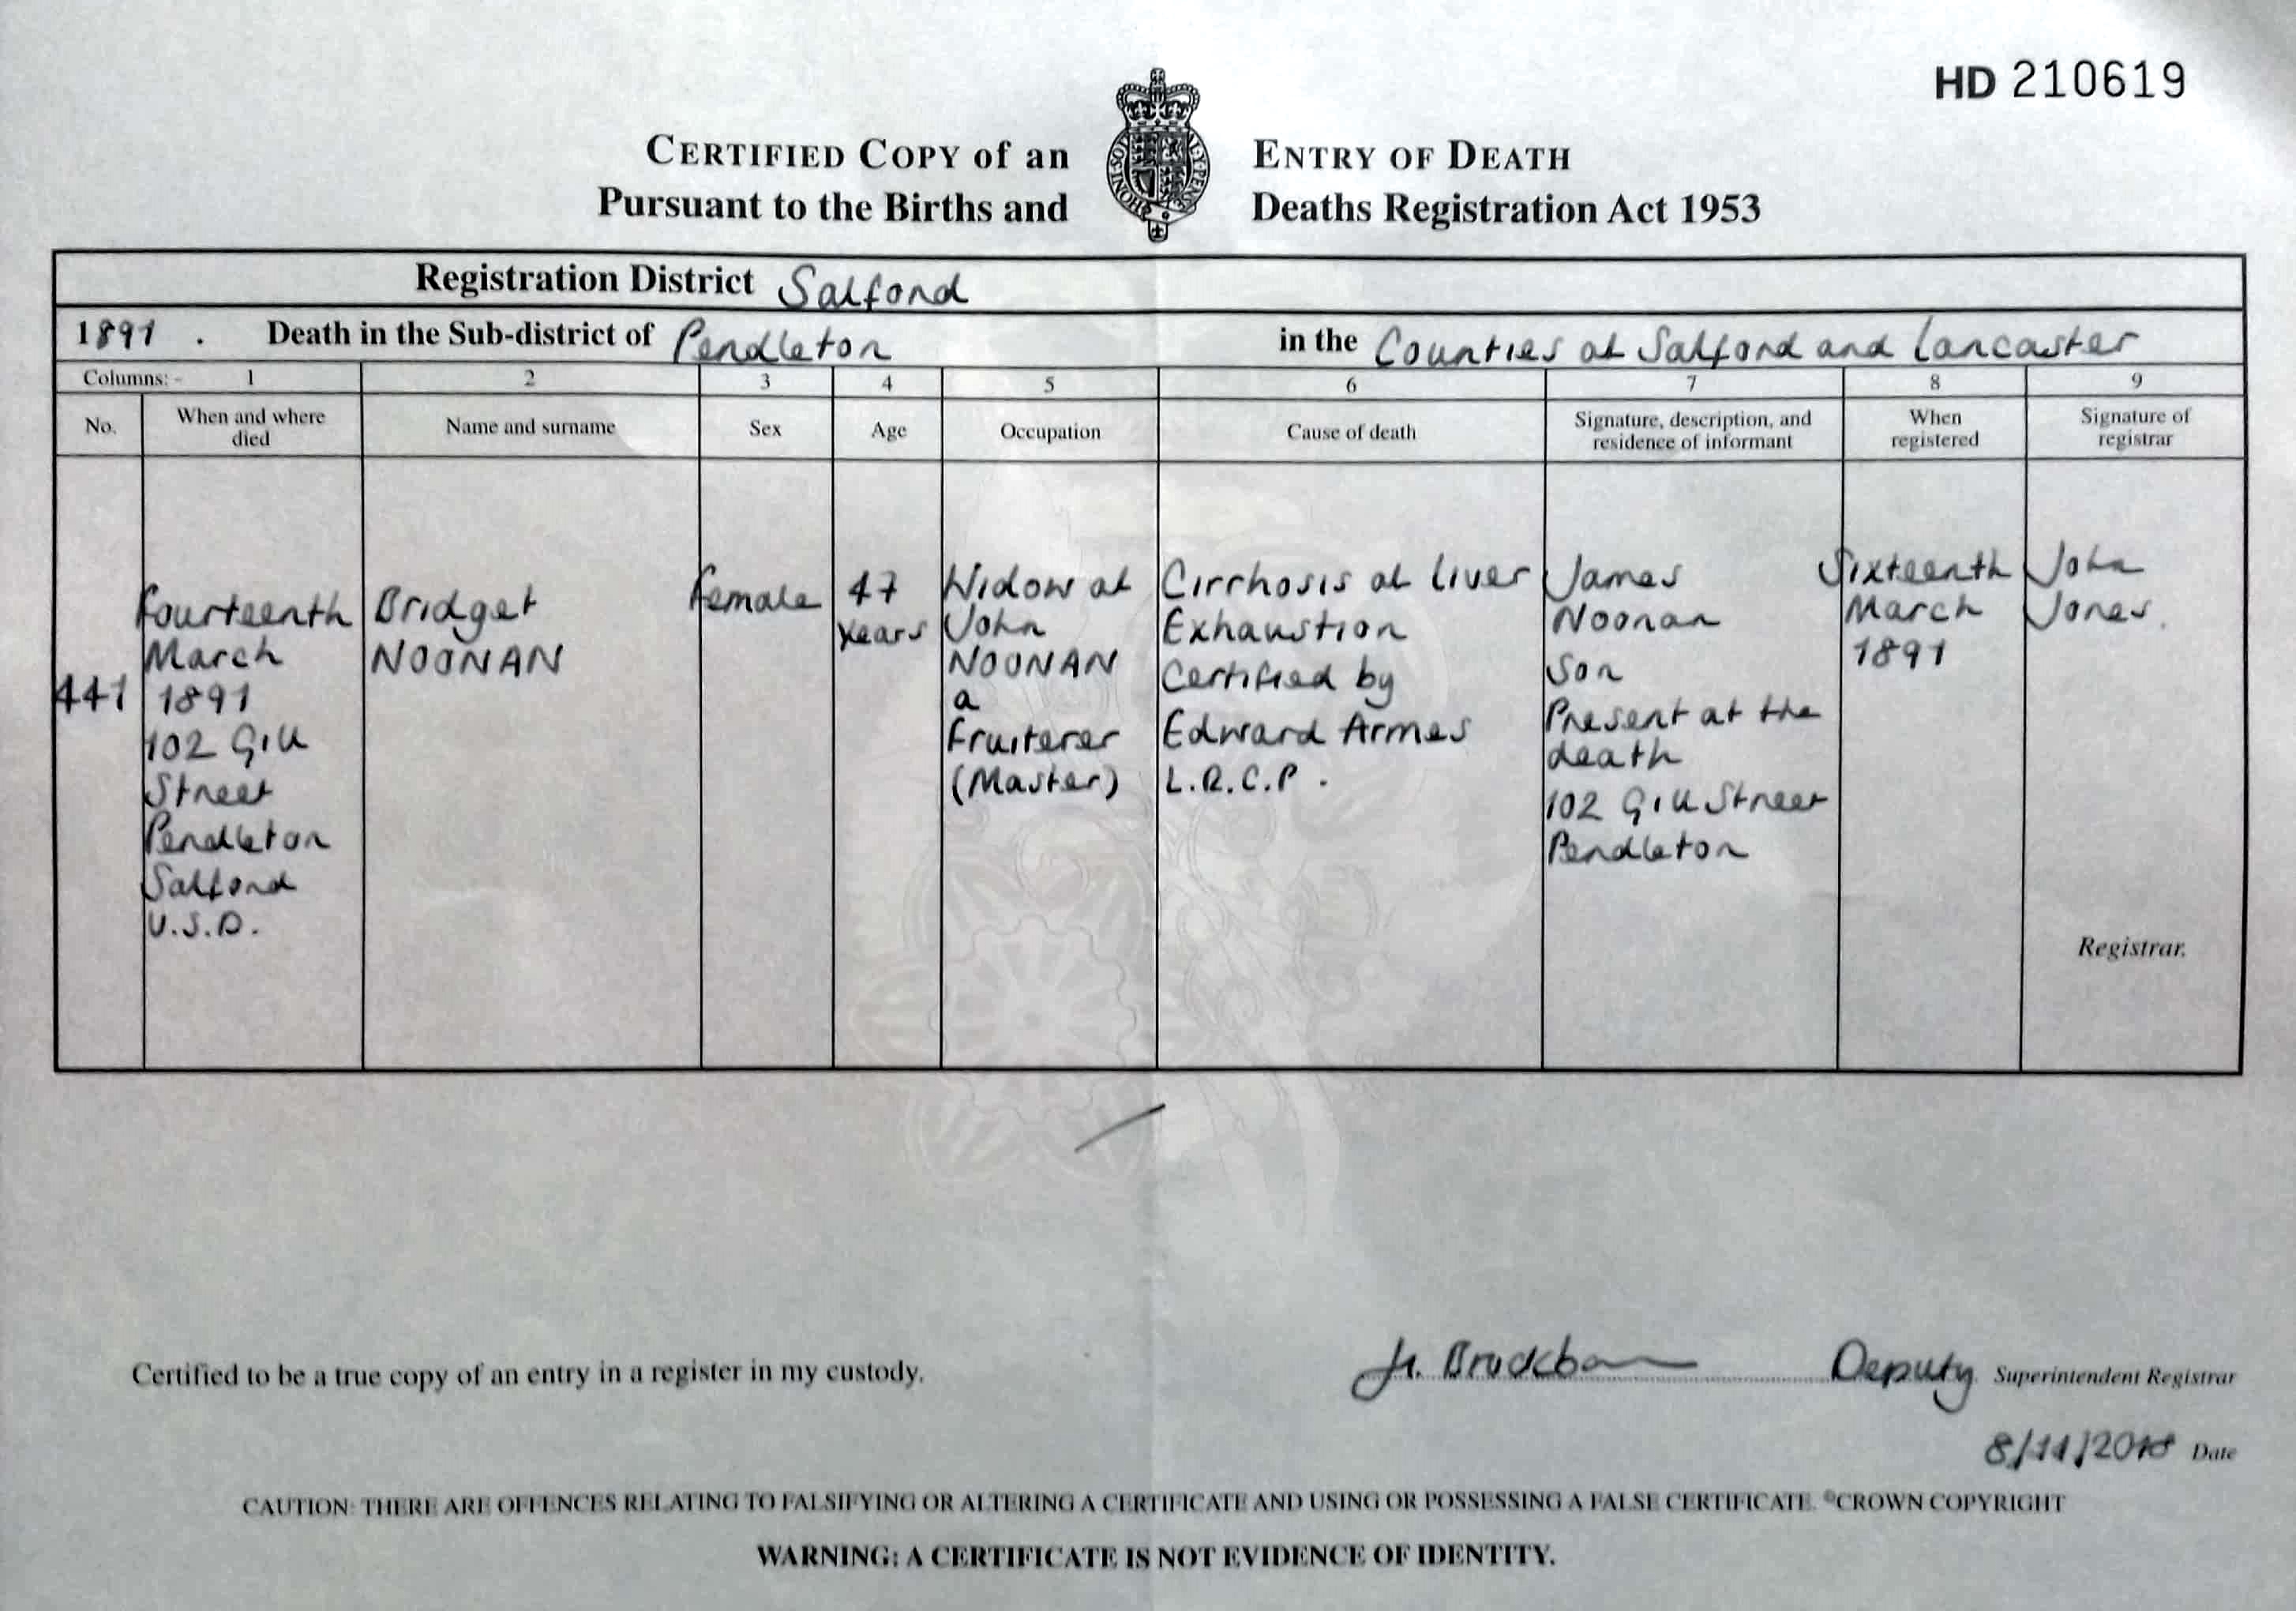 HD 210619
CERTIFIED COPY of an ENTRY OF DEATH
Pursuant to the Births and Deaths Registration Act 1953
HONI SOIT MAL Y PENSE
Registration District Salford
1891 . Death in the Sub-district of Pendleton in the Counties of Salford and Lancaster
Columns:- 1 2 3 4 5 6 7 8 9
No.
When and where
died
Name and surname
Sex
Age
Occupation
Cause of death
Signature, description, and
residence of informant
When
registered
Signature of
registrar
441
Fourteenth
March
1891
102 Gill
Street
Pendleton
Salford
U.S.D.
Bridget
NOONAN
Female
47
years
Widow of
John
NOONAN
a
Fruiterer
(Master)
Cirrhosis of liver
Exhaustion
Certified by
Edward Armes
L.R.C.P.
James
Noonan
Son
Present at the
death
102 Gill Street
Pendleton
Sixteenth
March
1891
John
Jones.
Registrar.
Certified to be a true copy of an entry in a register in my custody.
Deputy Superintendent Registrar
8/11/2018 Date
CAUTION: THERE ARE OFFENCES RELATING TO FALSIFYING OR ALTERING A CERTIFICATE AND USING OR POSSESSING A FALSE CERTIFICATE. ©CROWN COPYRIGHT
WARNING: A CERTIFICATE IS NOT EVIDENCE OF IDENTITY.